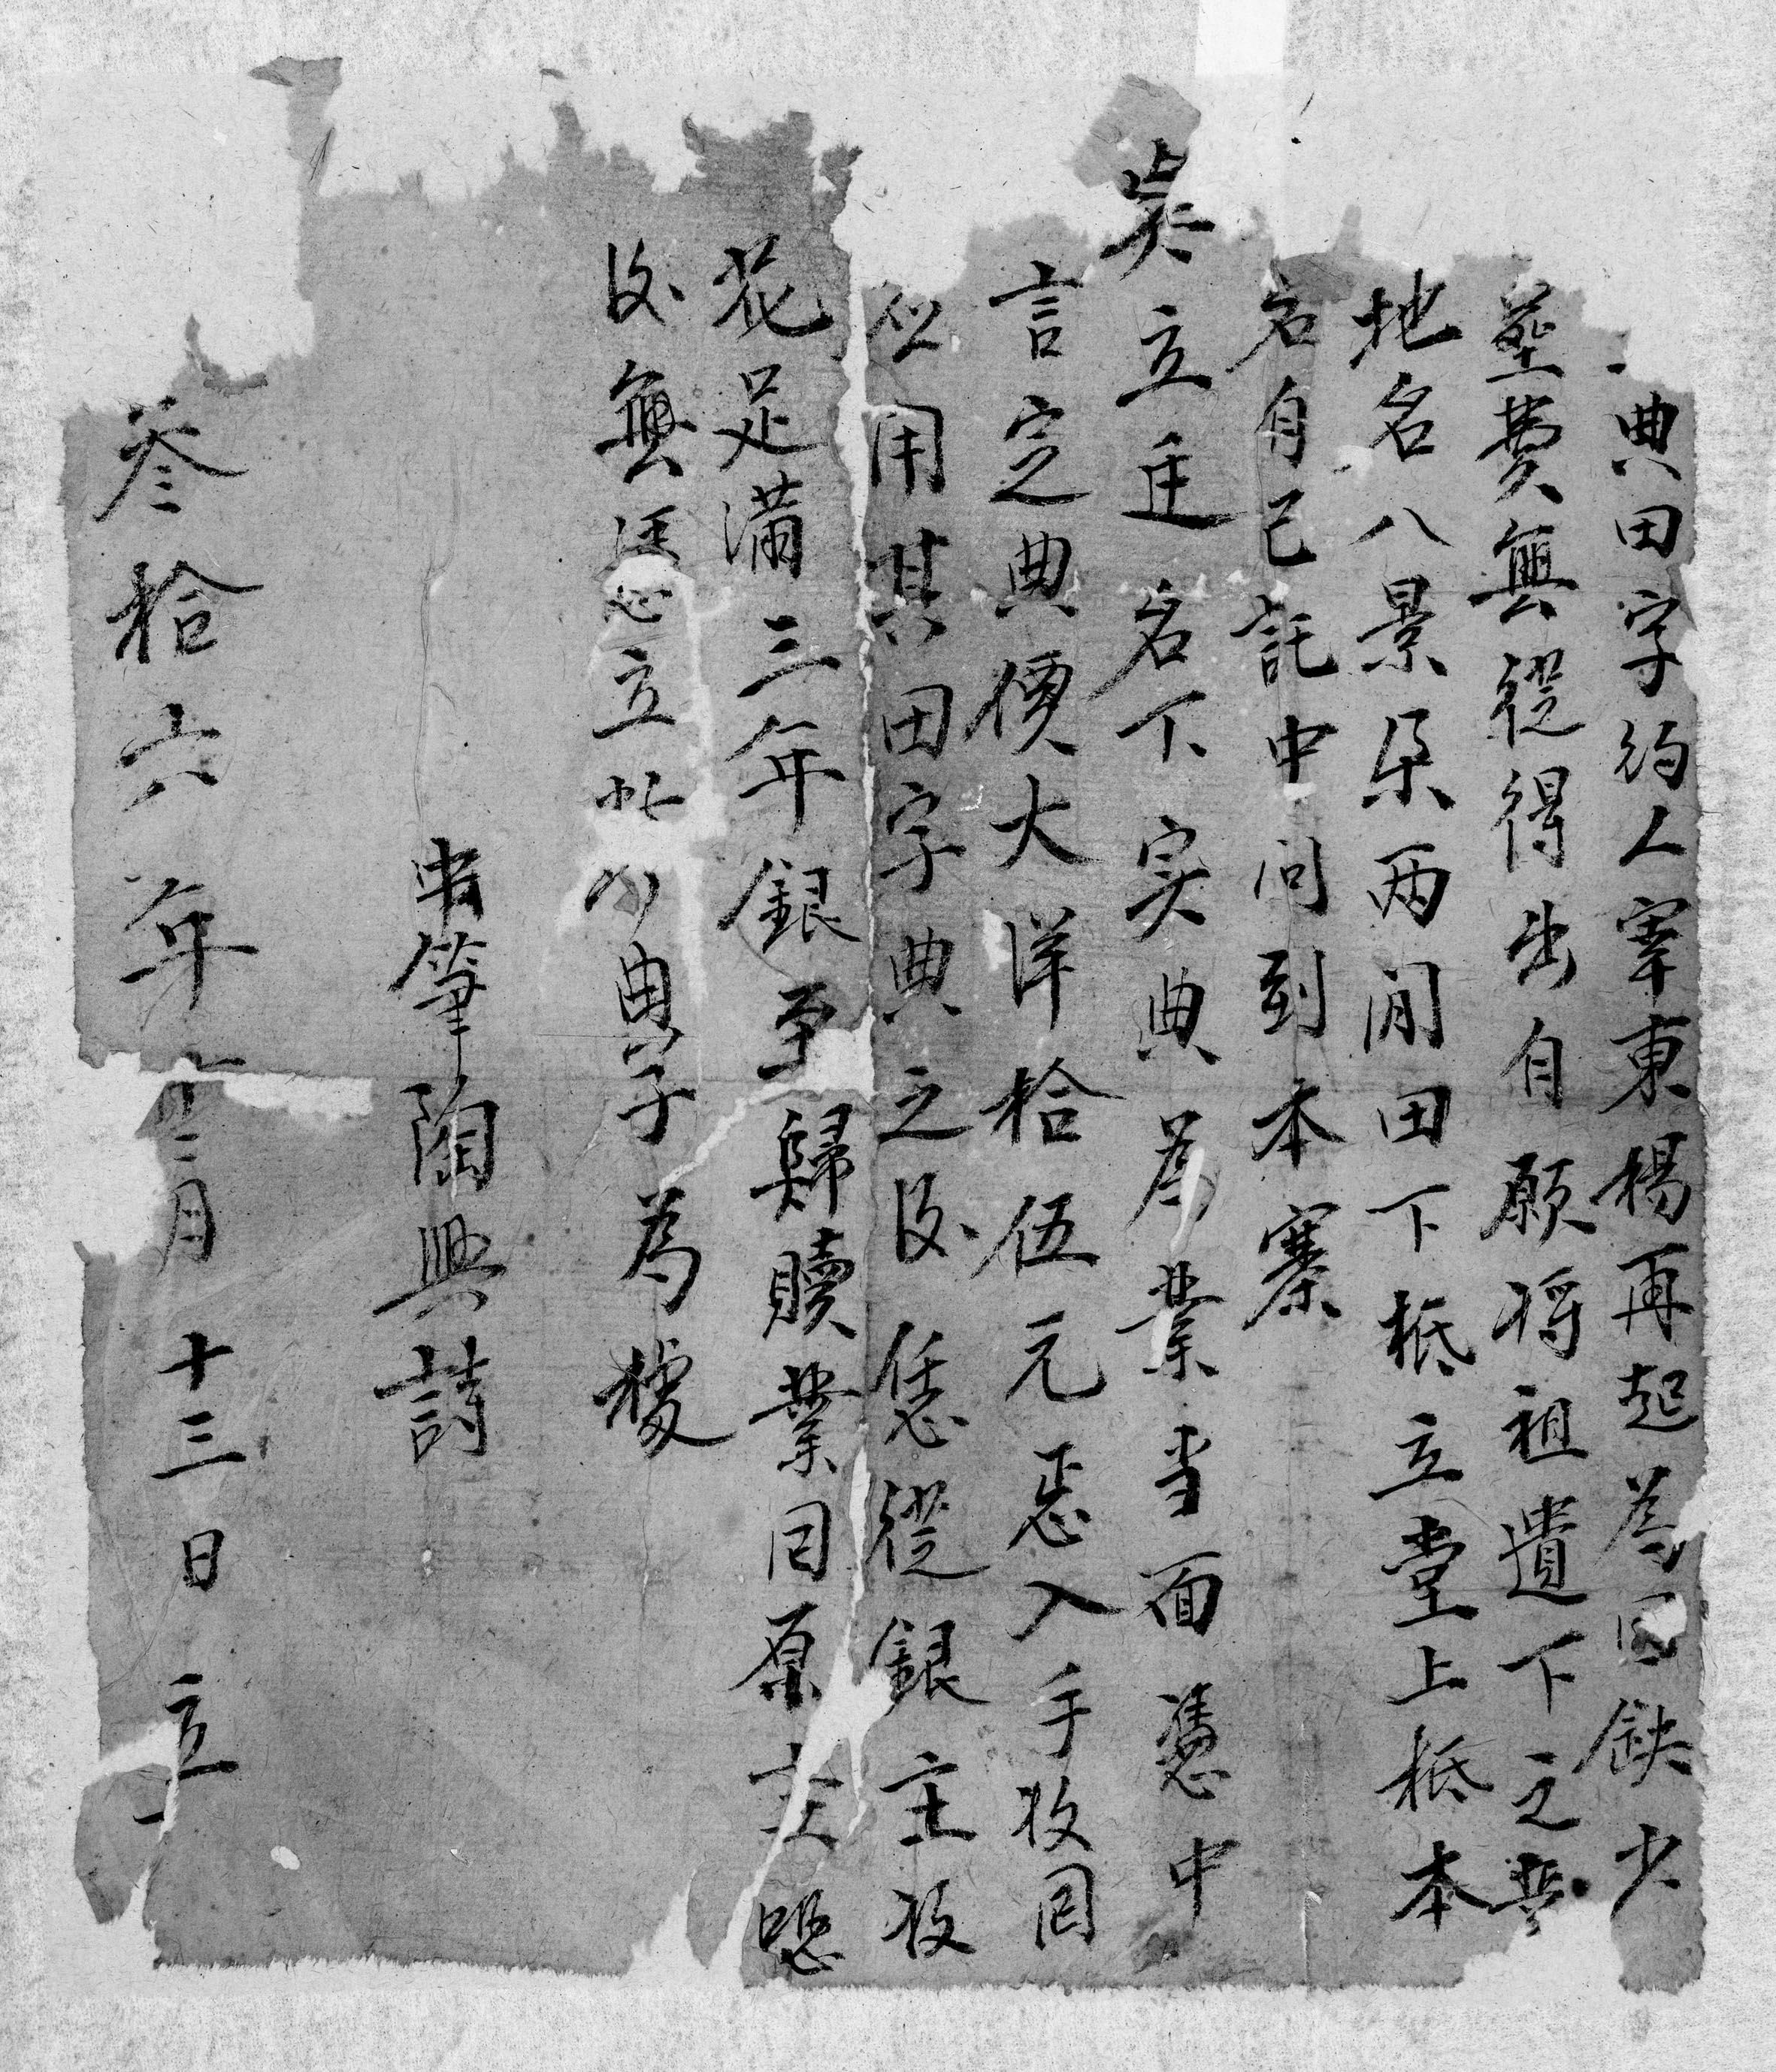 典田字約人宰東楊再起為因缺少
塟費無從得出自願将祖遺下之業
地名八景朶两間田下抵立堂上抵本
名自己託中问到本寨
吳立迋名下实典為業当面憑中
言定典價大洋拾伍元悉入手收囬
似用其田字典之後恁從銀主收
花足满三年銀至歸贖業囬原主恐
後無憑立此典字為據
筆陶興請
叁拾六年二月十三日立